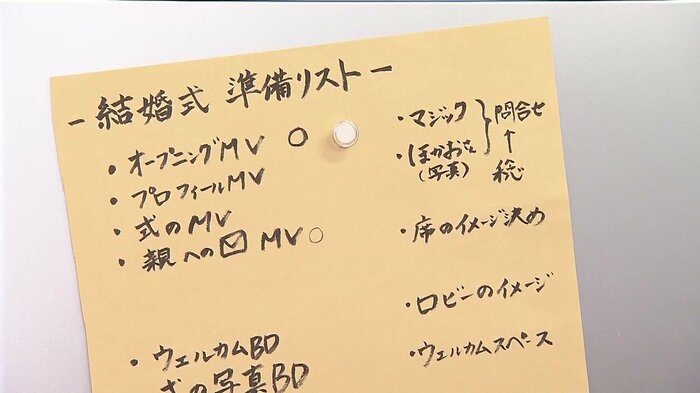 - 結婚式 準備リスト -
・オープニングMV ○
・プロフィールMV
・式のMV
・親への MV ○
・ウェルカムBD
式の写真BD
・マジック
・ほかおさん
(写真)
問合せ
↑
・席のイメージ決め
・ロビーのイメージ
・ウェルカムスペース